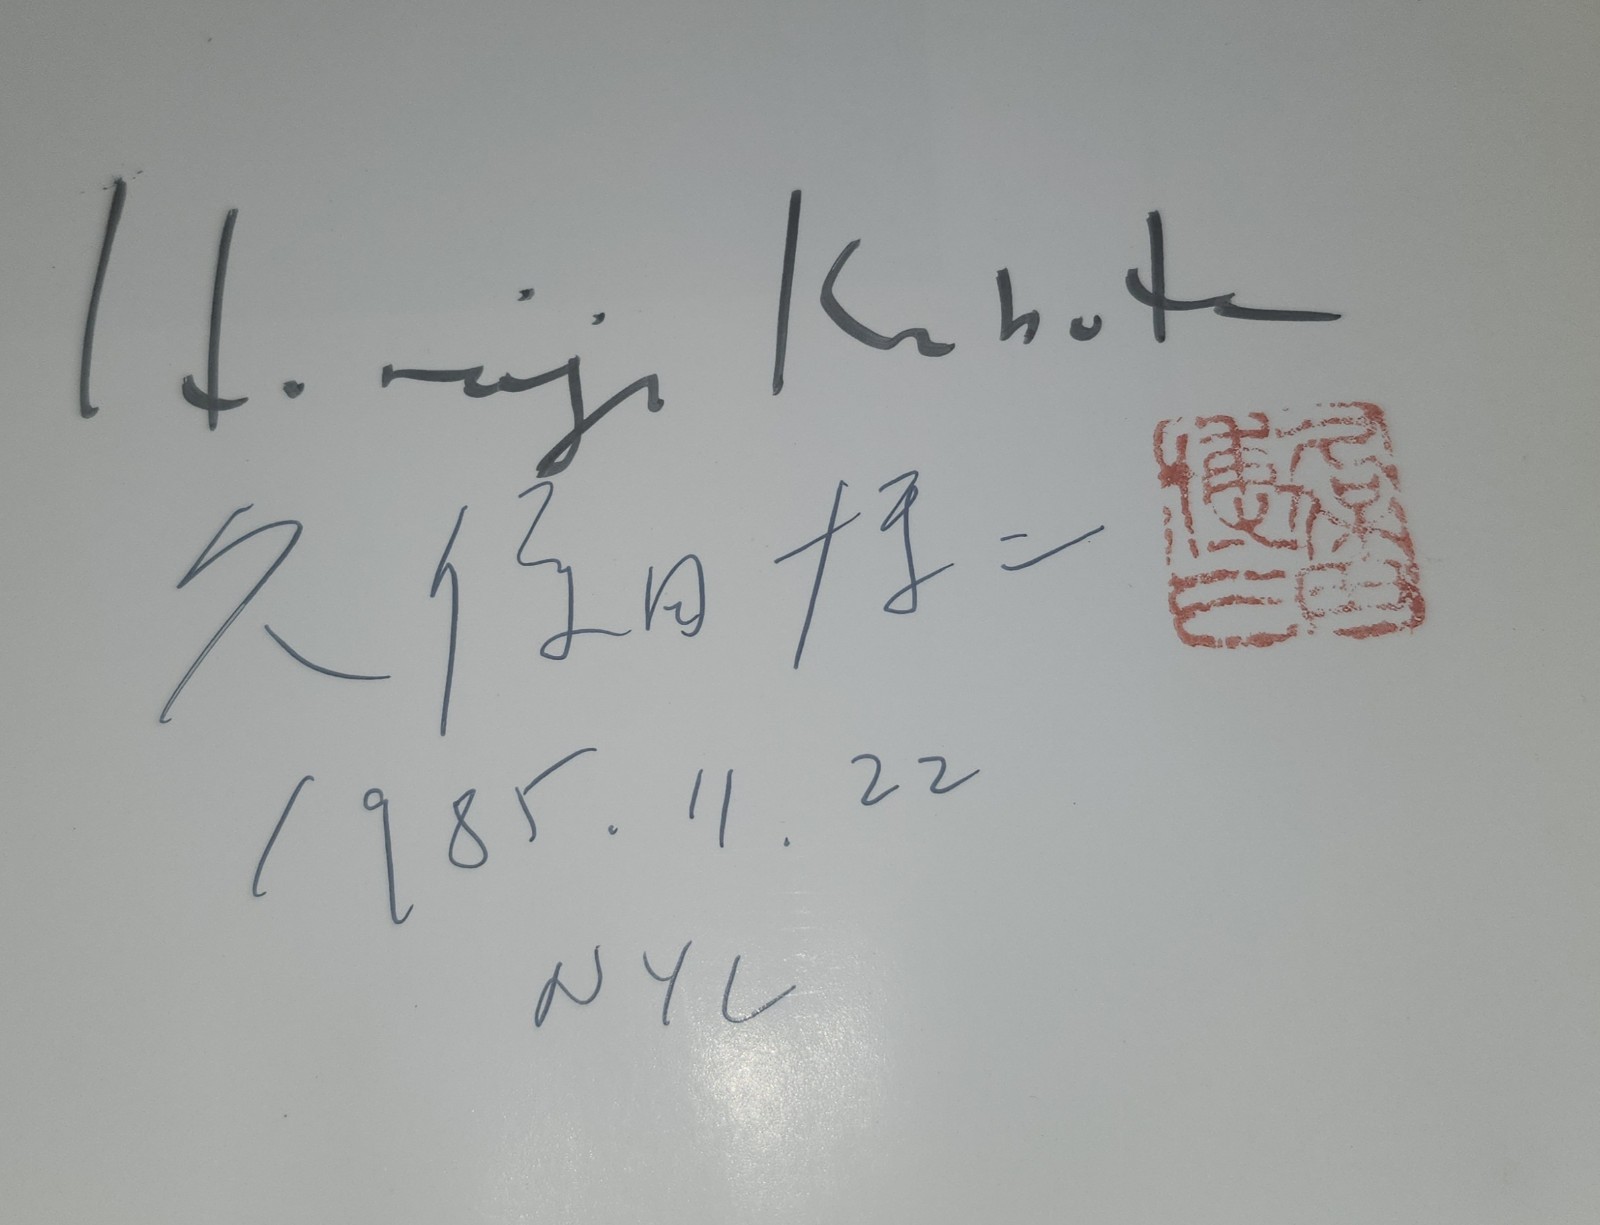 Hiroji Kubota
久保田博二
1985.11.22
NYC